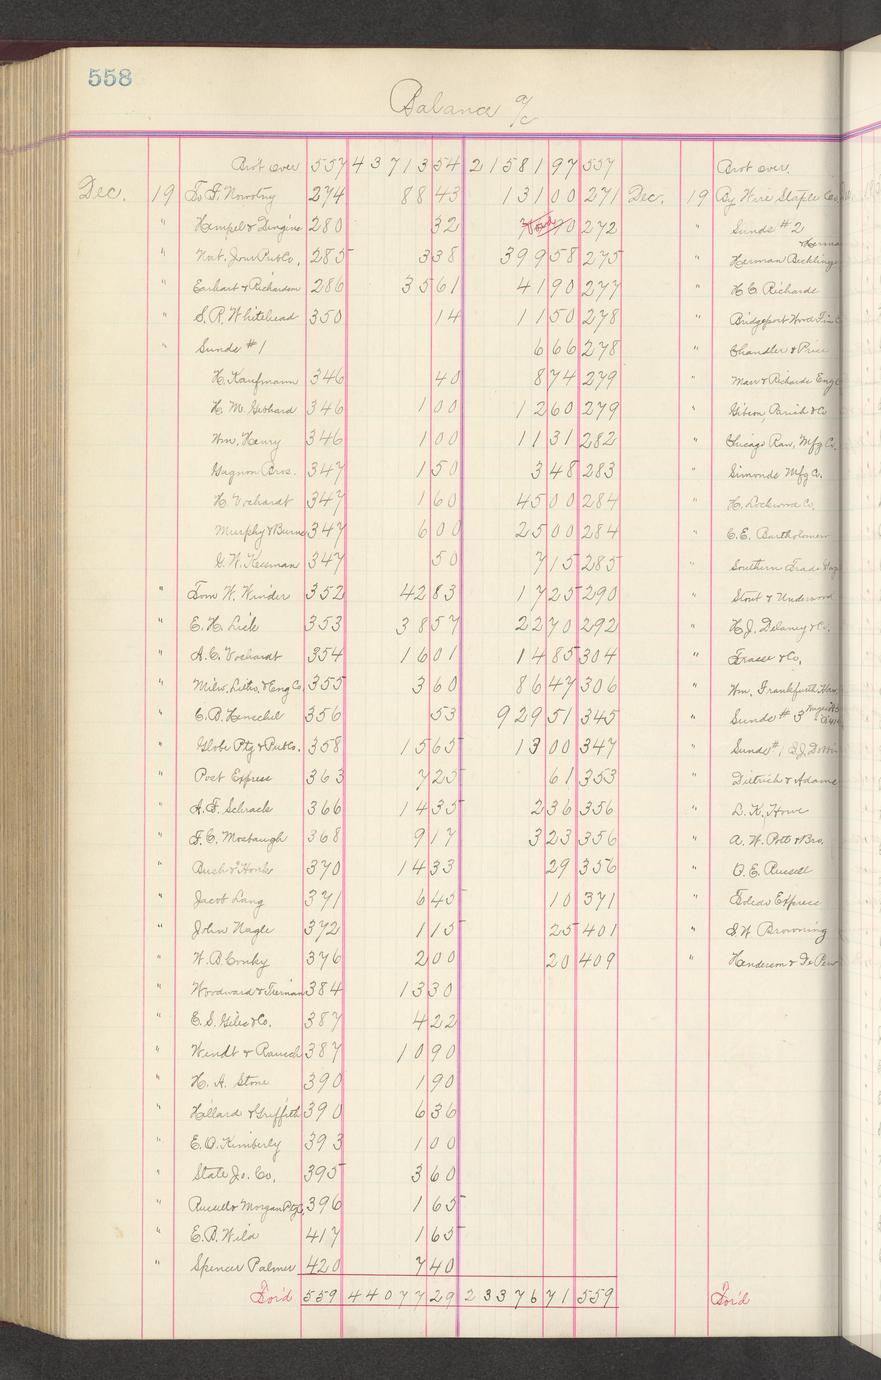 558
Balance a/c
Brot over 557 43713 54 21581 97 557 Brot over.
Dec. 19 To F. Nowotny 274 88 43 131 00 271 Dec. 19 By Wire Staple Co.
" Hempel & 280 32 Void 70 272 " Sunds #2
" Nat. Jour Pub Co, 285 3 38 399 58 275 " Herman
" Earhart & Richardson 286 35 61 41 90 277 " H. C. Richards
" S. R. Whitehead 350 14 11 50 278 " Bridgeport Wood
" Sunds #1 6 66 278 " Chandler & Price
H. Kaufmann 346 40 8 74 279 " Marr & Richards Eng
H. M. Gebhard 346 1 00 12 60 279 " Gibson, Parish & Co
Wm. Henry 346 1 00 11 31 282 " Chicago Raw. Mfg Co.
Gagnon Bros. 347 1 50 3 48 283 " Simonds Mfg Co.
H. Vochardt 347 1 60 45 00 284 " H. Lockwood Co.
Murphy & Burns 347 6 00 25 00 284 " C. E. Bartholomew
G. W. Keesman 347 50 7 15 285 " Southern Trade
" Tom W. Winder 352 42 83 17 25 290 " Stout & Underwood
" E. H. Lisk 353 38 57 22 70 292 " H. J. Delaney & Co.
" A. C. Vochardt 354 16 01 14 85 304 " Frasse & Co,
" Milw. Litho. & Eng Co. 355 3 60 86 47 306 " Wm. Frankfurth
" C. B. Henschel 356 53 929 51 345 " Sunds #3
" Globe Ptg & Pub Co. 358 15 65 13 00 347 " Sunds #1
" Post Express 363 7 25 61 353 " Dietrich & Adams
" A. F. Schrack 366 14 35 2 36 356 " L. K. Howe
" F. C. Mosbaugh 368 9 17 3 23 356 " A. W. Potts & Bro.
" Bush & 370 14 33 29 356 " O. E. Russell
" Jacob Lang 371 6 45 10 371 " Toledo Express
" John Nagle 372 1 15 25 401 " S. W. Browning
" W. B. Conky 376 2 00 20 409 " Henderson & De Pew
" Woodward & Tiernan 384 13 30
" E. S. Giles & Co. 387 4 22
" Wendt & Rausch 387 10 90
" H. A. Stone 390 1 90
" Hillard & Griffith 390 6 36
" E. O. Kimberly 393 1 00
" State Jo. Co, 395 3 60
" Russell & Morgan Ptg Co, 396 1 65
" E. B. Wild 417 1 65
" Spencer Palmer 420 7 40
For'd 559 44077 29 23376 71 559 For'd